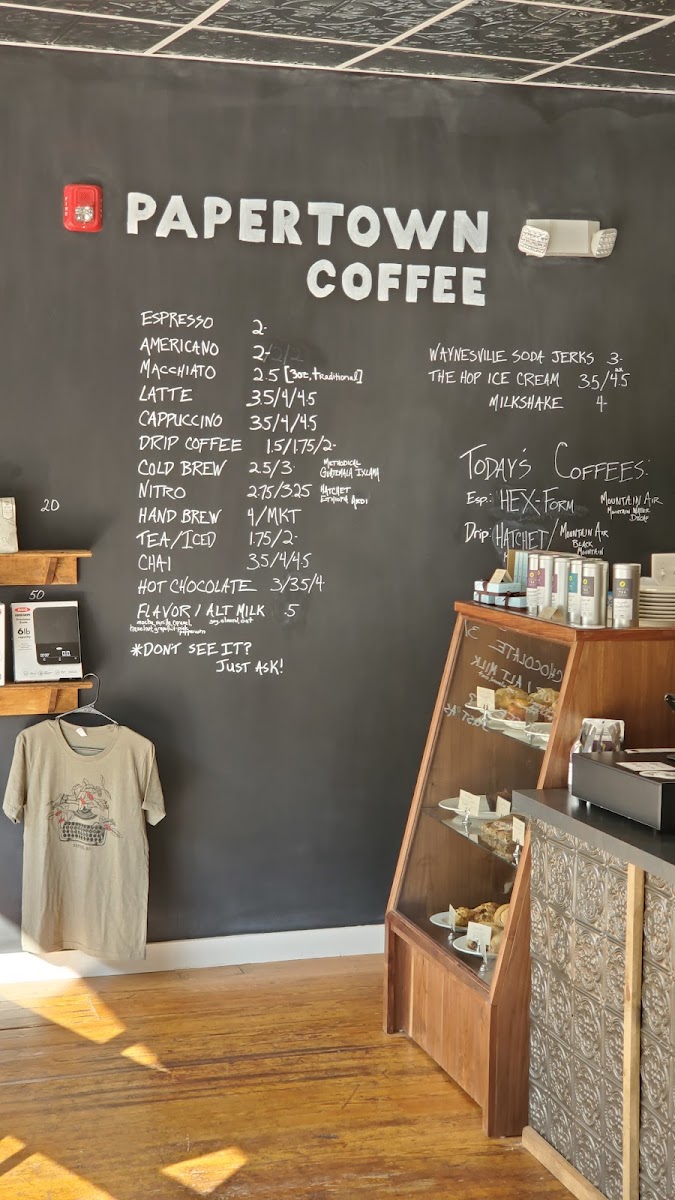 PAPERTOWN
COFFEE
ESPRESSO 2-
AMERICANO 2-
MACCHIATO 2.5 [3oz, traditional]
LATTE 3.5/4/4.5
CAPPUCCINO 3.5/4/4.5
DRIP COFFEE 1.5/1.75/2-
COLD BREW 2.5/3- METHODICAL
GUATEMALA IXLAMA
NITRO 2.75/3.25 HATCHET
ETHIOPIA ARDI
HAND BREW 4/MKT
TEA/ICED 1.75/2-
CHAI 3.5/4/4.5
HOT CHOCOLATE 3/3.5/4
FLAVOR / ALT MILK .5
mocha, vanilla, caramel soy, almond, oat
*DONT SEE IT?
JUST ASK!
WAYNESVILLE SODA JERKS 3-
THE HOP ICE CREAM 3.5/4.5
MILKSHAKE 4-
TODAY'S COFFEES:
Esp: HEX-FORM MOUNTAIN AIR
MOUNTAIN WATER
DECAF
Drip: HATCHET/ MOUNTAIN AIR
BLACK
MOUNTAIN
20
50
OXO
6lb
FIRE